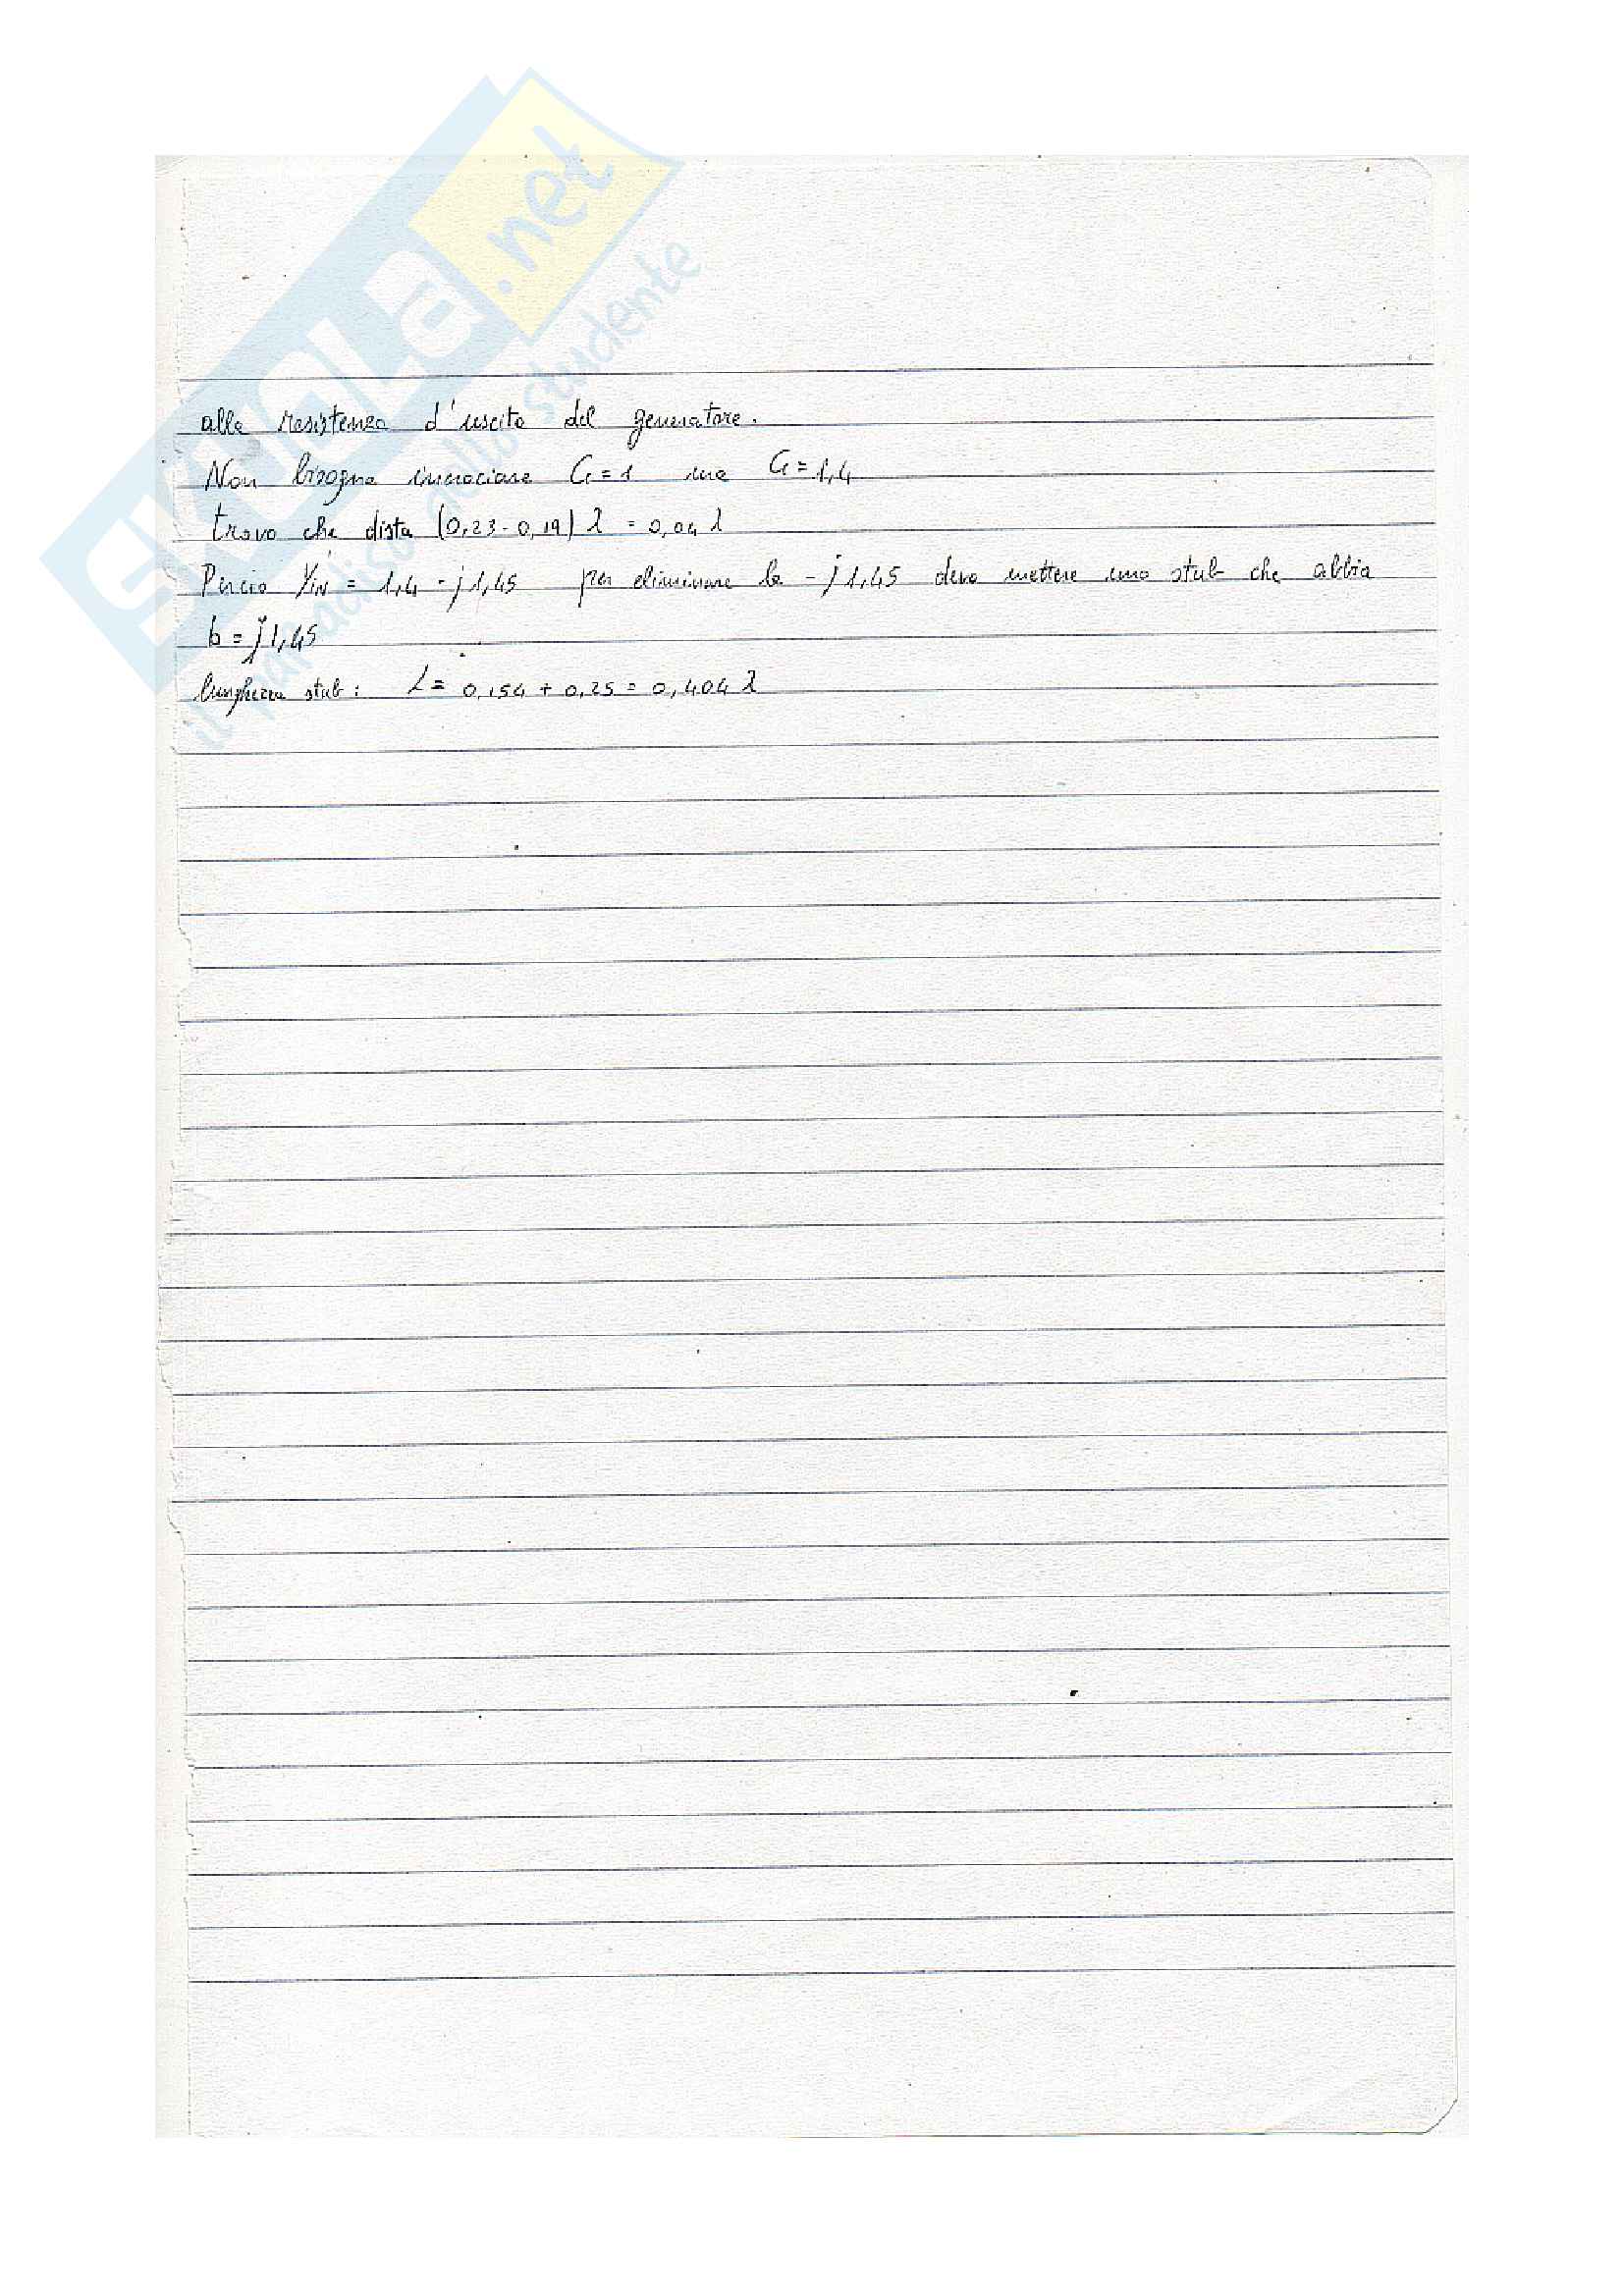 SKUOLA.net
il paradiso dello studente
alla resistenza d'uscita del generatore.
Non bisogna incrociare G=1 ma G=1,4
trovo che dista (0,23-0,19) λ = 0,04 λ
Perciò YIN = 1,4 - j1,45 per eliminare la -j1,45 devo mettere uno stub che abbia
b = j1,45
lunghezza stub: L = 0,154 + 0,25 = 0,404 λ